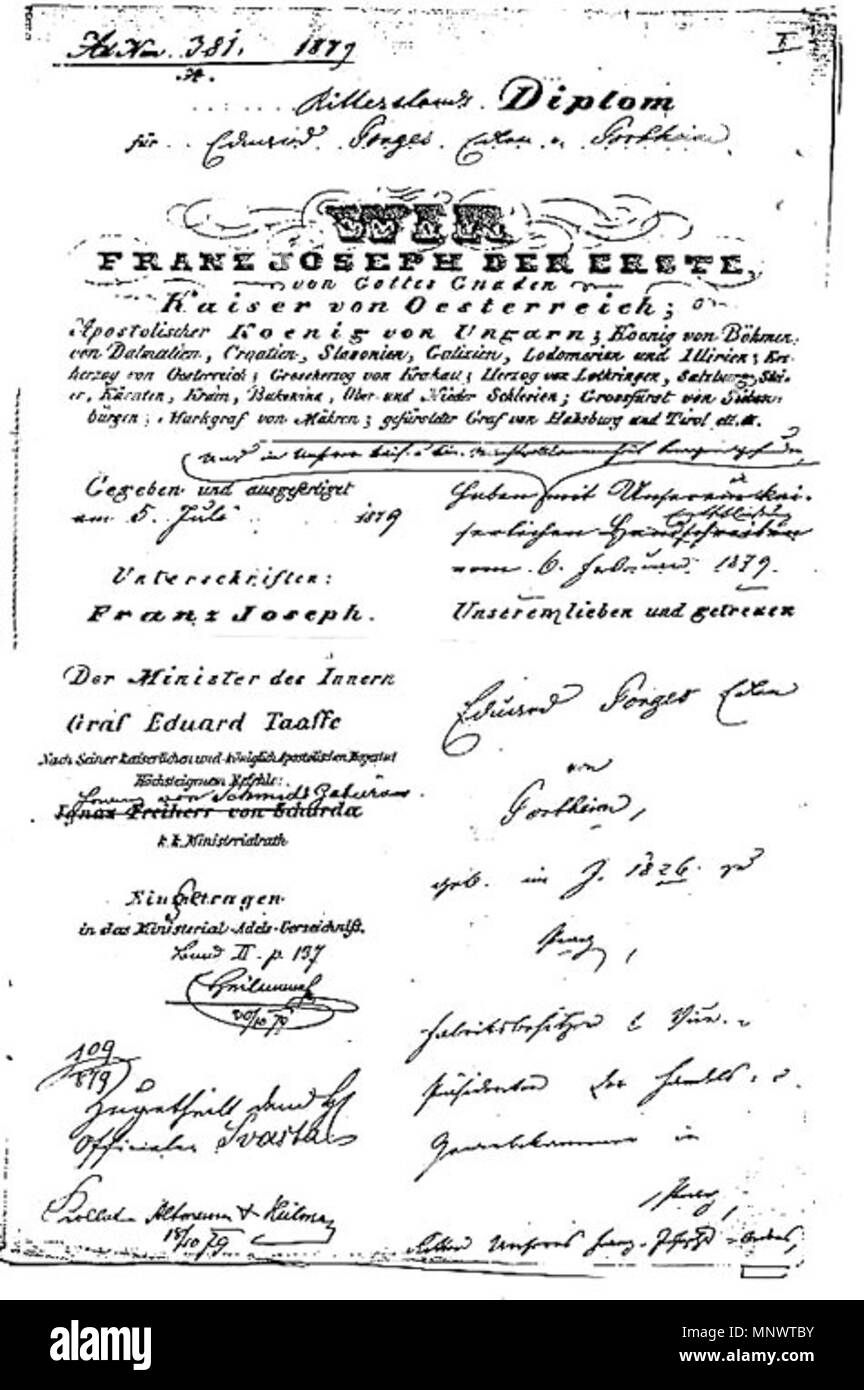 Ad Nro. 381. 1879
A.
I
Ritterstands. Diplom
für Eduard Porges Edlen v. Portheim
WIR
FRANZ JOSEPH DER ERSTE,
von Gottes Gnaden
Kaiser von Oesterreich;
Apostolischer Koenig von Ungarn; Koenig von Böhmen,
von Dalmatien, Croatien, Slavonien, Galizien, Lodomerien und Illirien; Erz-
herzog von Oesterreich; Grosherzog von Krakau; Herzog von Lothringen, Salzburg, Stei-
er, Kärnten, Krain, Bukovina, Ober- und Nieder Schlesien; Grossfürst von Sieben-
bürgen; Markgraf von Mähren; gefürsteter Graf von Habsburg und Tirol ett. ett.
und in Unserer kais. u. kön. Machtvollkommenheit bewogen gefunden
Gegeben und ausgefertiget
am 5. Juli 1879
Unterschriften:
Franz Joseph.
Der Minister des Innern
Graf Eduard Taaffe
Nach Seiner kaiserlichen und königlich Apostolischen Majestät
Höchsteigenem Befehle:
von Schmidt Zabiérow
Ignaz Freiherr von Schurda
k. k. Ministerialrath
Eingetragen
in das Ministerial-Adels-Verzeichniß.
Band II. p. 137
Heilmann
20/10 79
109
879
Zugetheilt dem H
Officialen Svasta
Kollat. Altmann & Heilman
18/10 79
haben mit Unserer kai-
serlichen Handschreiben
Entschließung
vom 6. Februar 1879.
Unserem lieben und getreuen
Eduard Porges Edlen
von
Portheim,
geb. im J. 1826 zu
Prag,
Fabriksbesitzer & Vice-
Präsidenten der Handels- u.
Gewerbekammer in
Prag,
Ritter Unseres Franz-Joseph-Ordens,
alamy
Image ID: MNWTBY
www.alamy.com